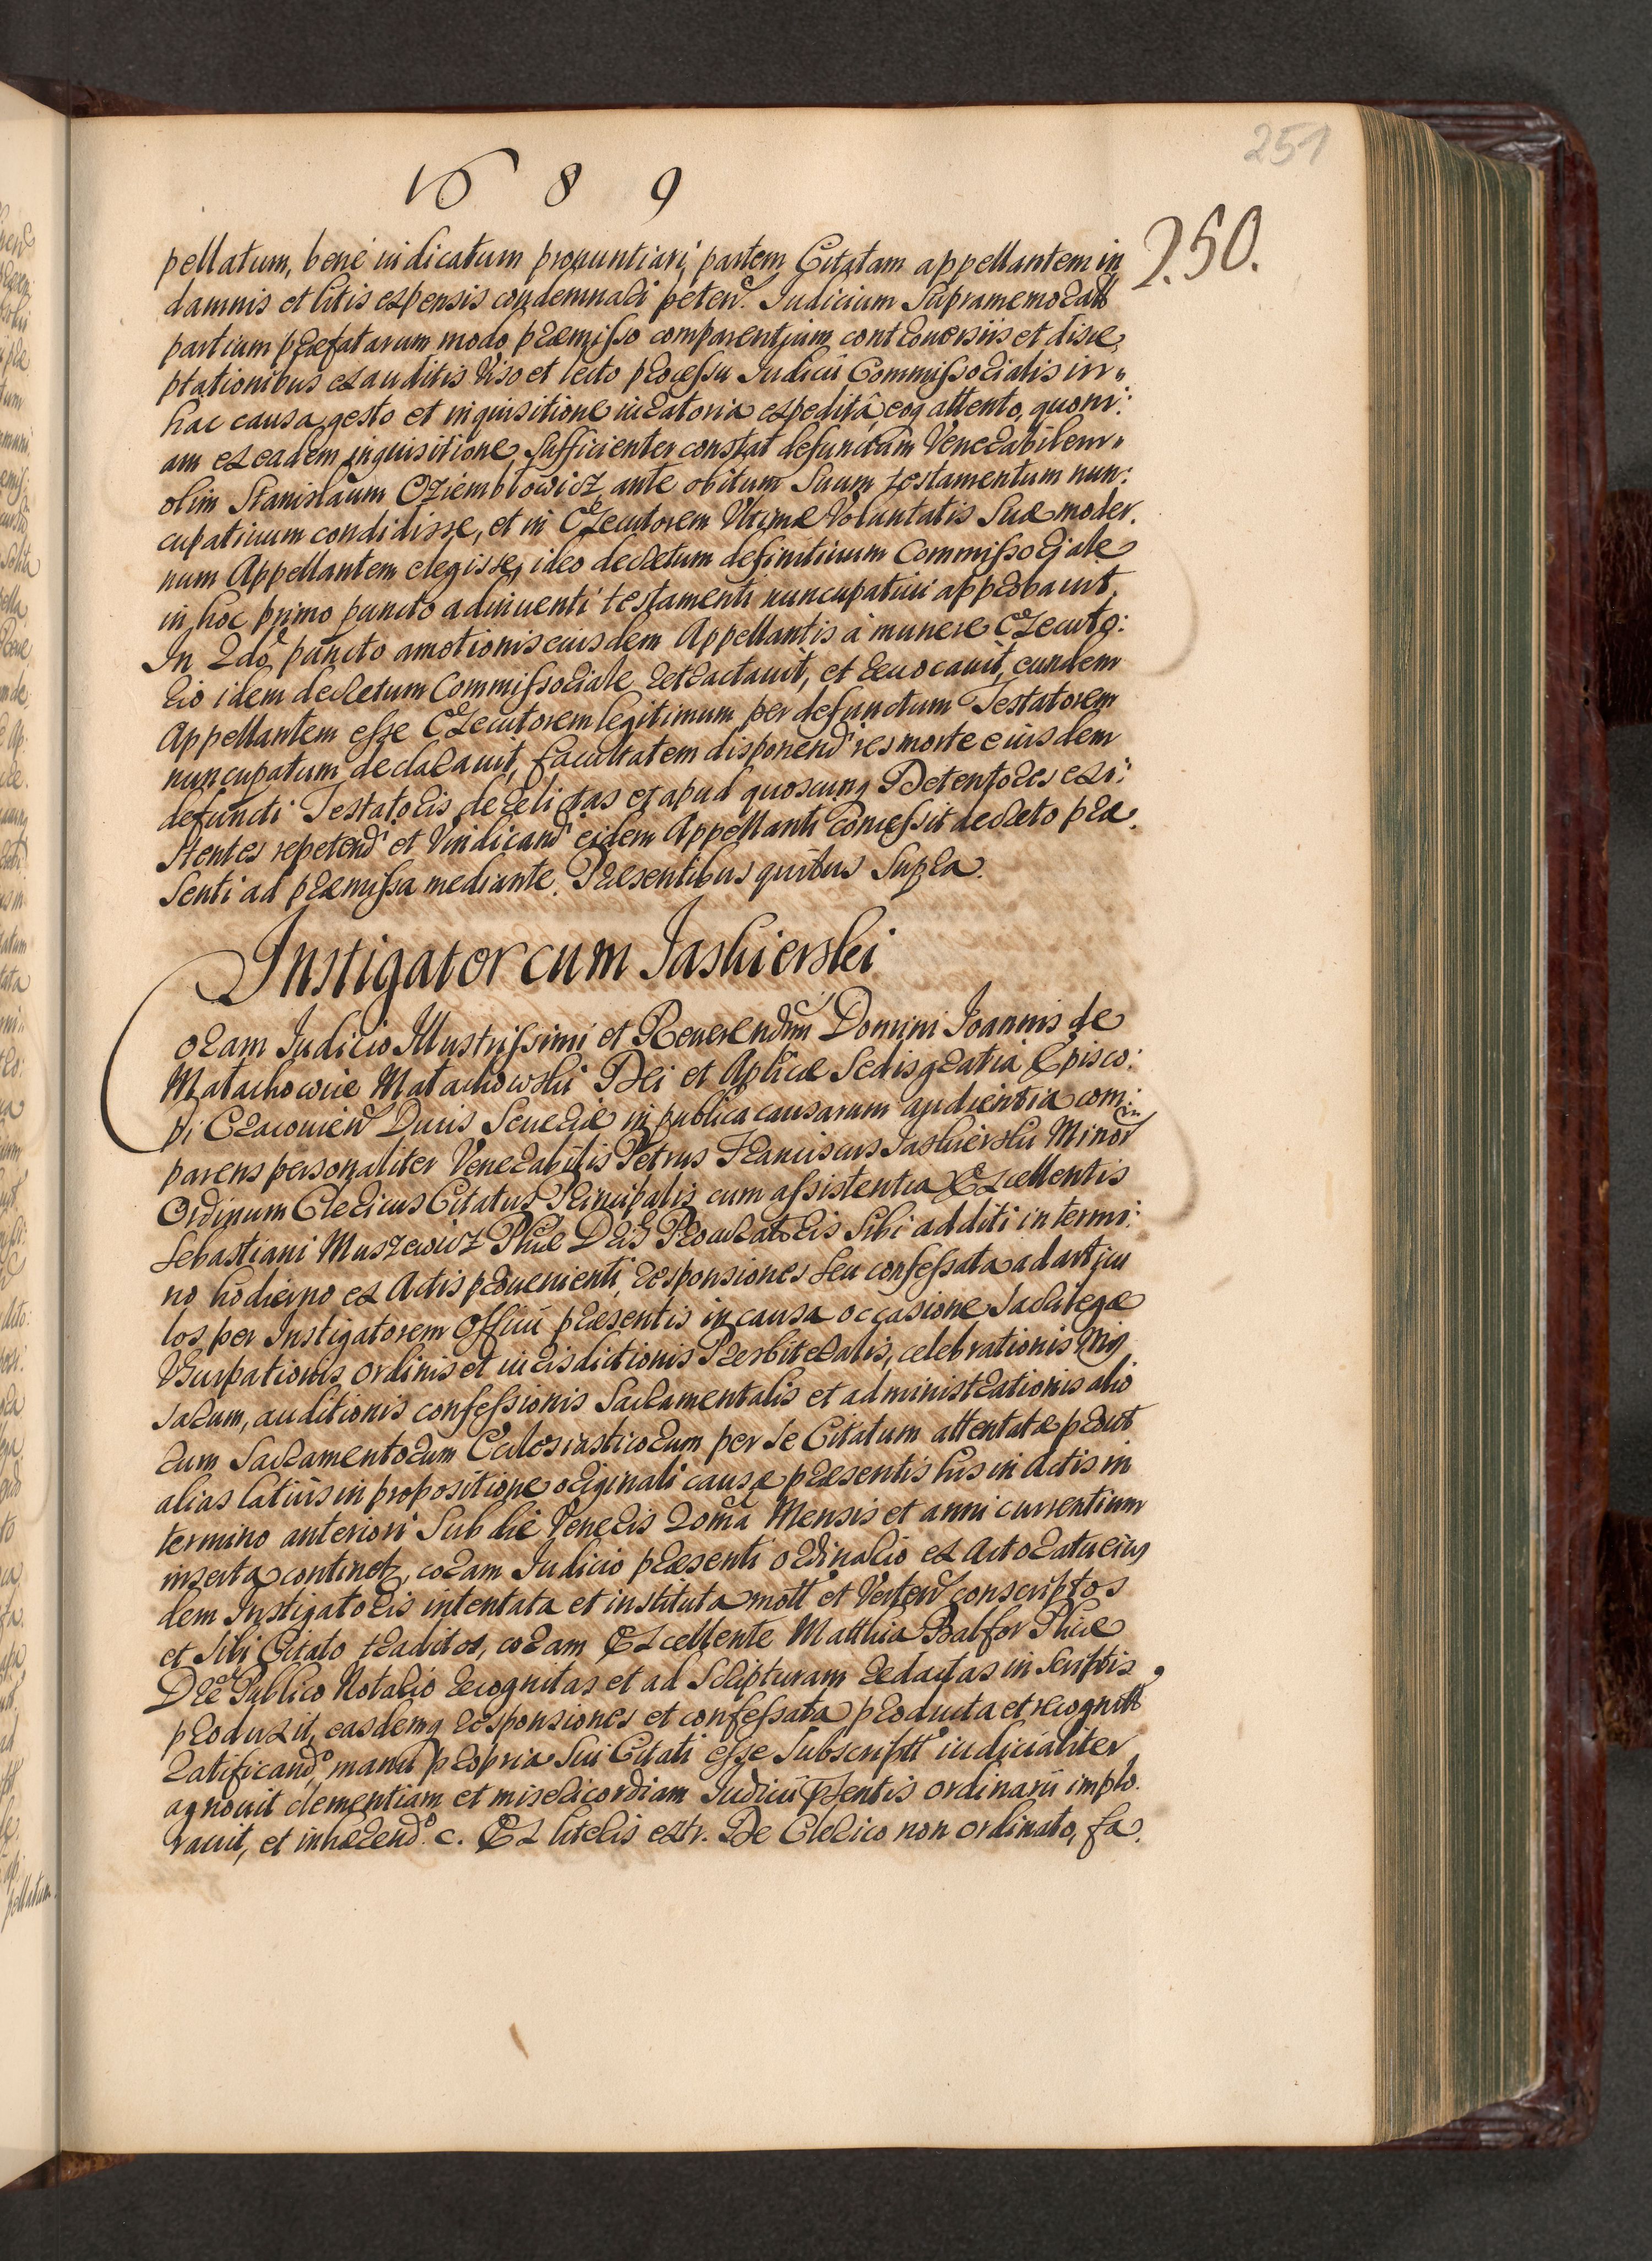 251
1689
250.
pellatum, bene iudicatum pronuntiari, partem Citatam appellantem in
damnis et litis expensis condemnari peten. Judicium Supramemoratt
partium præfatarum modo præmisso comparentium controuersiis et disce,
ptationibus exauditis Viso et lecto processu Judicii Commissorialis in
hac causa gesto et inquisitione iuratoria expedita eoq attento, quoni:
am ex eadem inquisitione, sufficienter constat defunctum Venerabilem
olim Stanislaum Oziembłowicz, ante obitum Suum testamentum nun:
cupatiuum condidisse, et in Exęcutorem Vltimæ Voluntatis Suæ moder.
num Appellantem elegisse, ideo decretum definitiuum Commissoriale
in hoc primo puncto adinuenti testamenti nuncupatiui approbauit,
In 2do puncto amotionis eiusdem Appellantis à munere Executo:
rio idem decretum Commissoriale retractauit, et reuocauit, eundem
Appellantem esse Executorem legitimum per defunctum Testatorem
nuncupatum declarauit, facultatem disponend res morte eiusdem
defuncti Testatoris derelictas et apud quoscunq Detentores exi:
stentes repetend et Vindicand eidem Appellanti concessit decreto præ.
senti ad præmissa mediante. Præsentibus quibus Supra.
Instigator cum Jaskierski
Coram Judicio Illustrissimi et Reuerendmi Domini Joannis de
Małachowice Małachowski Dei et Aplicæ Sedis gratia Episco:
pi Cracouien Ducis Seueriæ in publica causarum audientia com:
parens personaliter Venerabilis Petrus Franciscus Jaskierski Minor
Ordinum Clericus Citatus Principalis cum assistentia Excellentis
Sebastiani Muszewicz Phiæ Dris Procuratoris sibi additi in termi:
no hodierno ex Actis prouenienti, responsiones seu confessata ad articu
los per Instigatorem Officii præsentis in causa occasione Sacrilegæ
Vsurpationis ordinis et iurisdictionis Presbiteralis, celebrationis Mis
sarum, auditionis confessionis Sacramentalis et administrationis alio
rum Sacramentorum Ecclesiasticorum per se Citatum attentatæ prout
alias latius in propositione originali causæ præsentis his in Actis in
termino anteriori Sub die Veneris 2oma Mensis et anni currentium
inserta continetz, coram Judicio præsenti ordinario ex Actoratu eius
dem Instigatoris intentata et instituta mott et Verten conscriptos
et sibi Citato traditos, coram Excellente Matthia Balfor Phiæ
Dre Publico Notario recognitas et ad Scripturam redactas in scriptis
produxit, easdemq responsiones et confessata producta et recognitt
ratificando, manu propria sui Citati esse Subscriptt iudicialiter
agnouit clementiam et misericordiam Judicii psentis ordinarii implo.
rauit, et inhærendo. c. Ex literis extr. De Clerico non ordinato, fa.